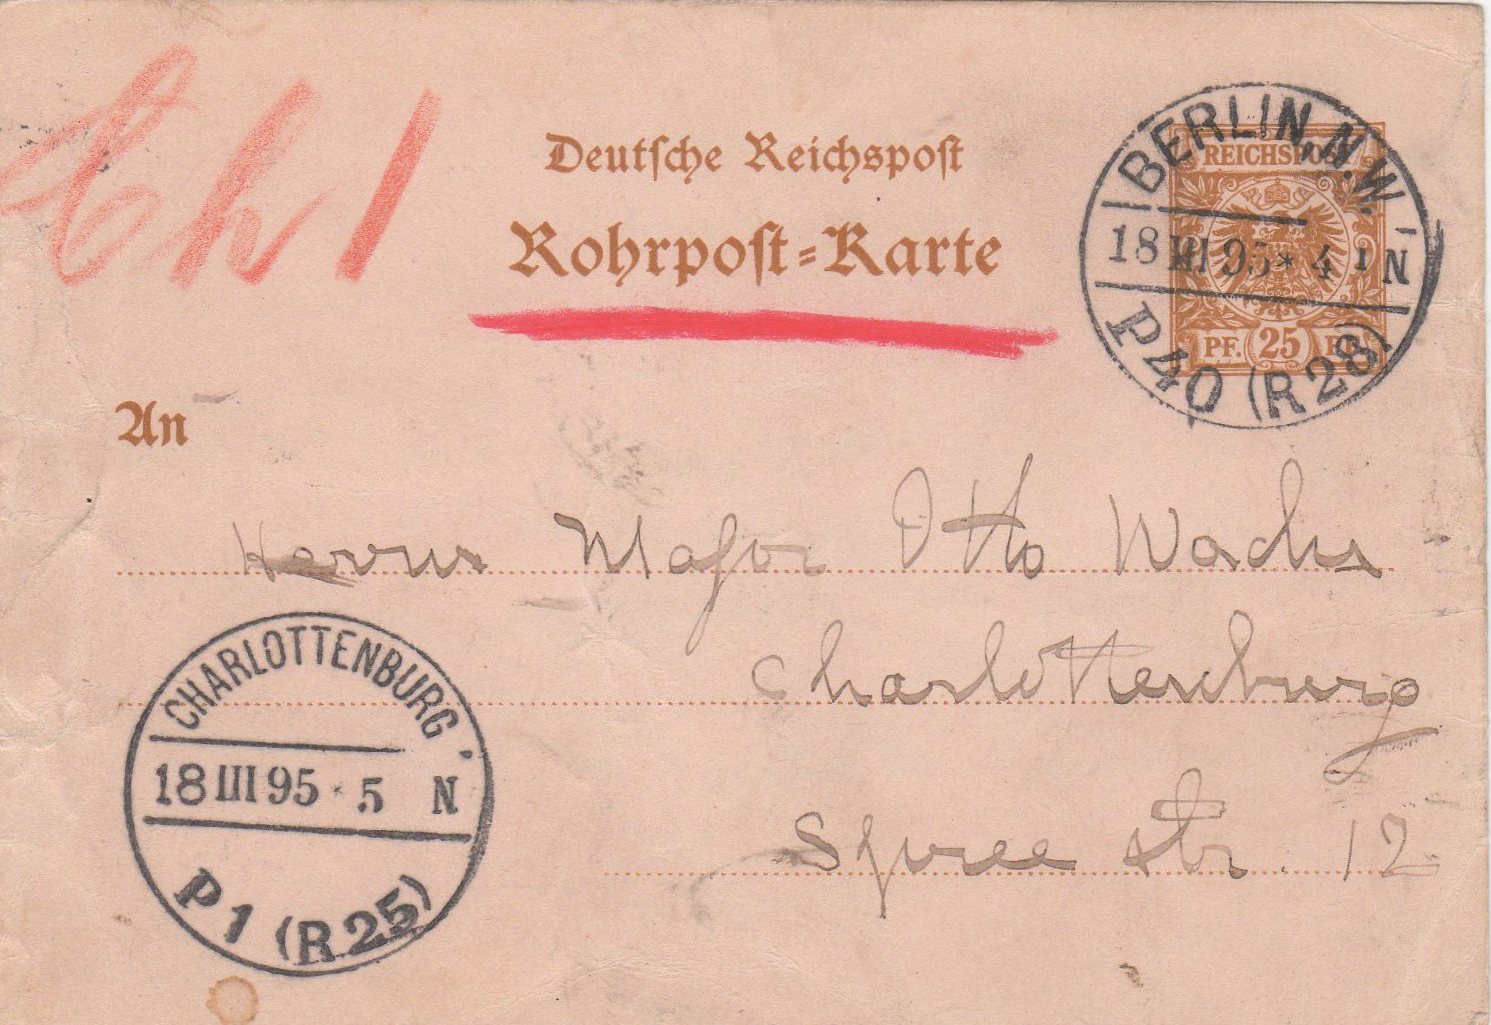 Ch 1
Deutsche Reichspost
Rohrpost-Karte
BERLIN, N.W.
18 III 95 * 4 1 N
P 40 (R 28)
REICHSPOST
PF. 25 PF.
An
Herrn Major Otto Wachs
Charlottenburg
Spree str. 12
CHARLOTTENBURG
18 III 95 · 5 N
P 1 (R 25)